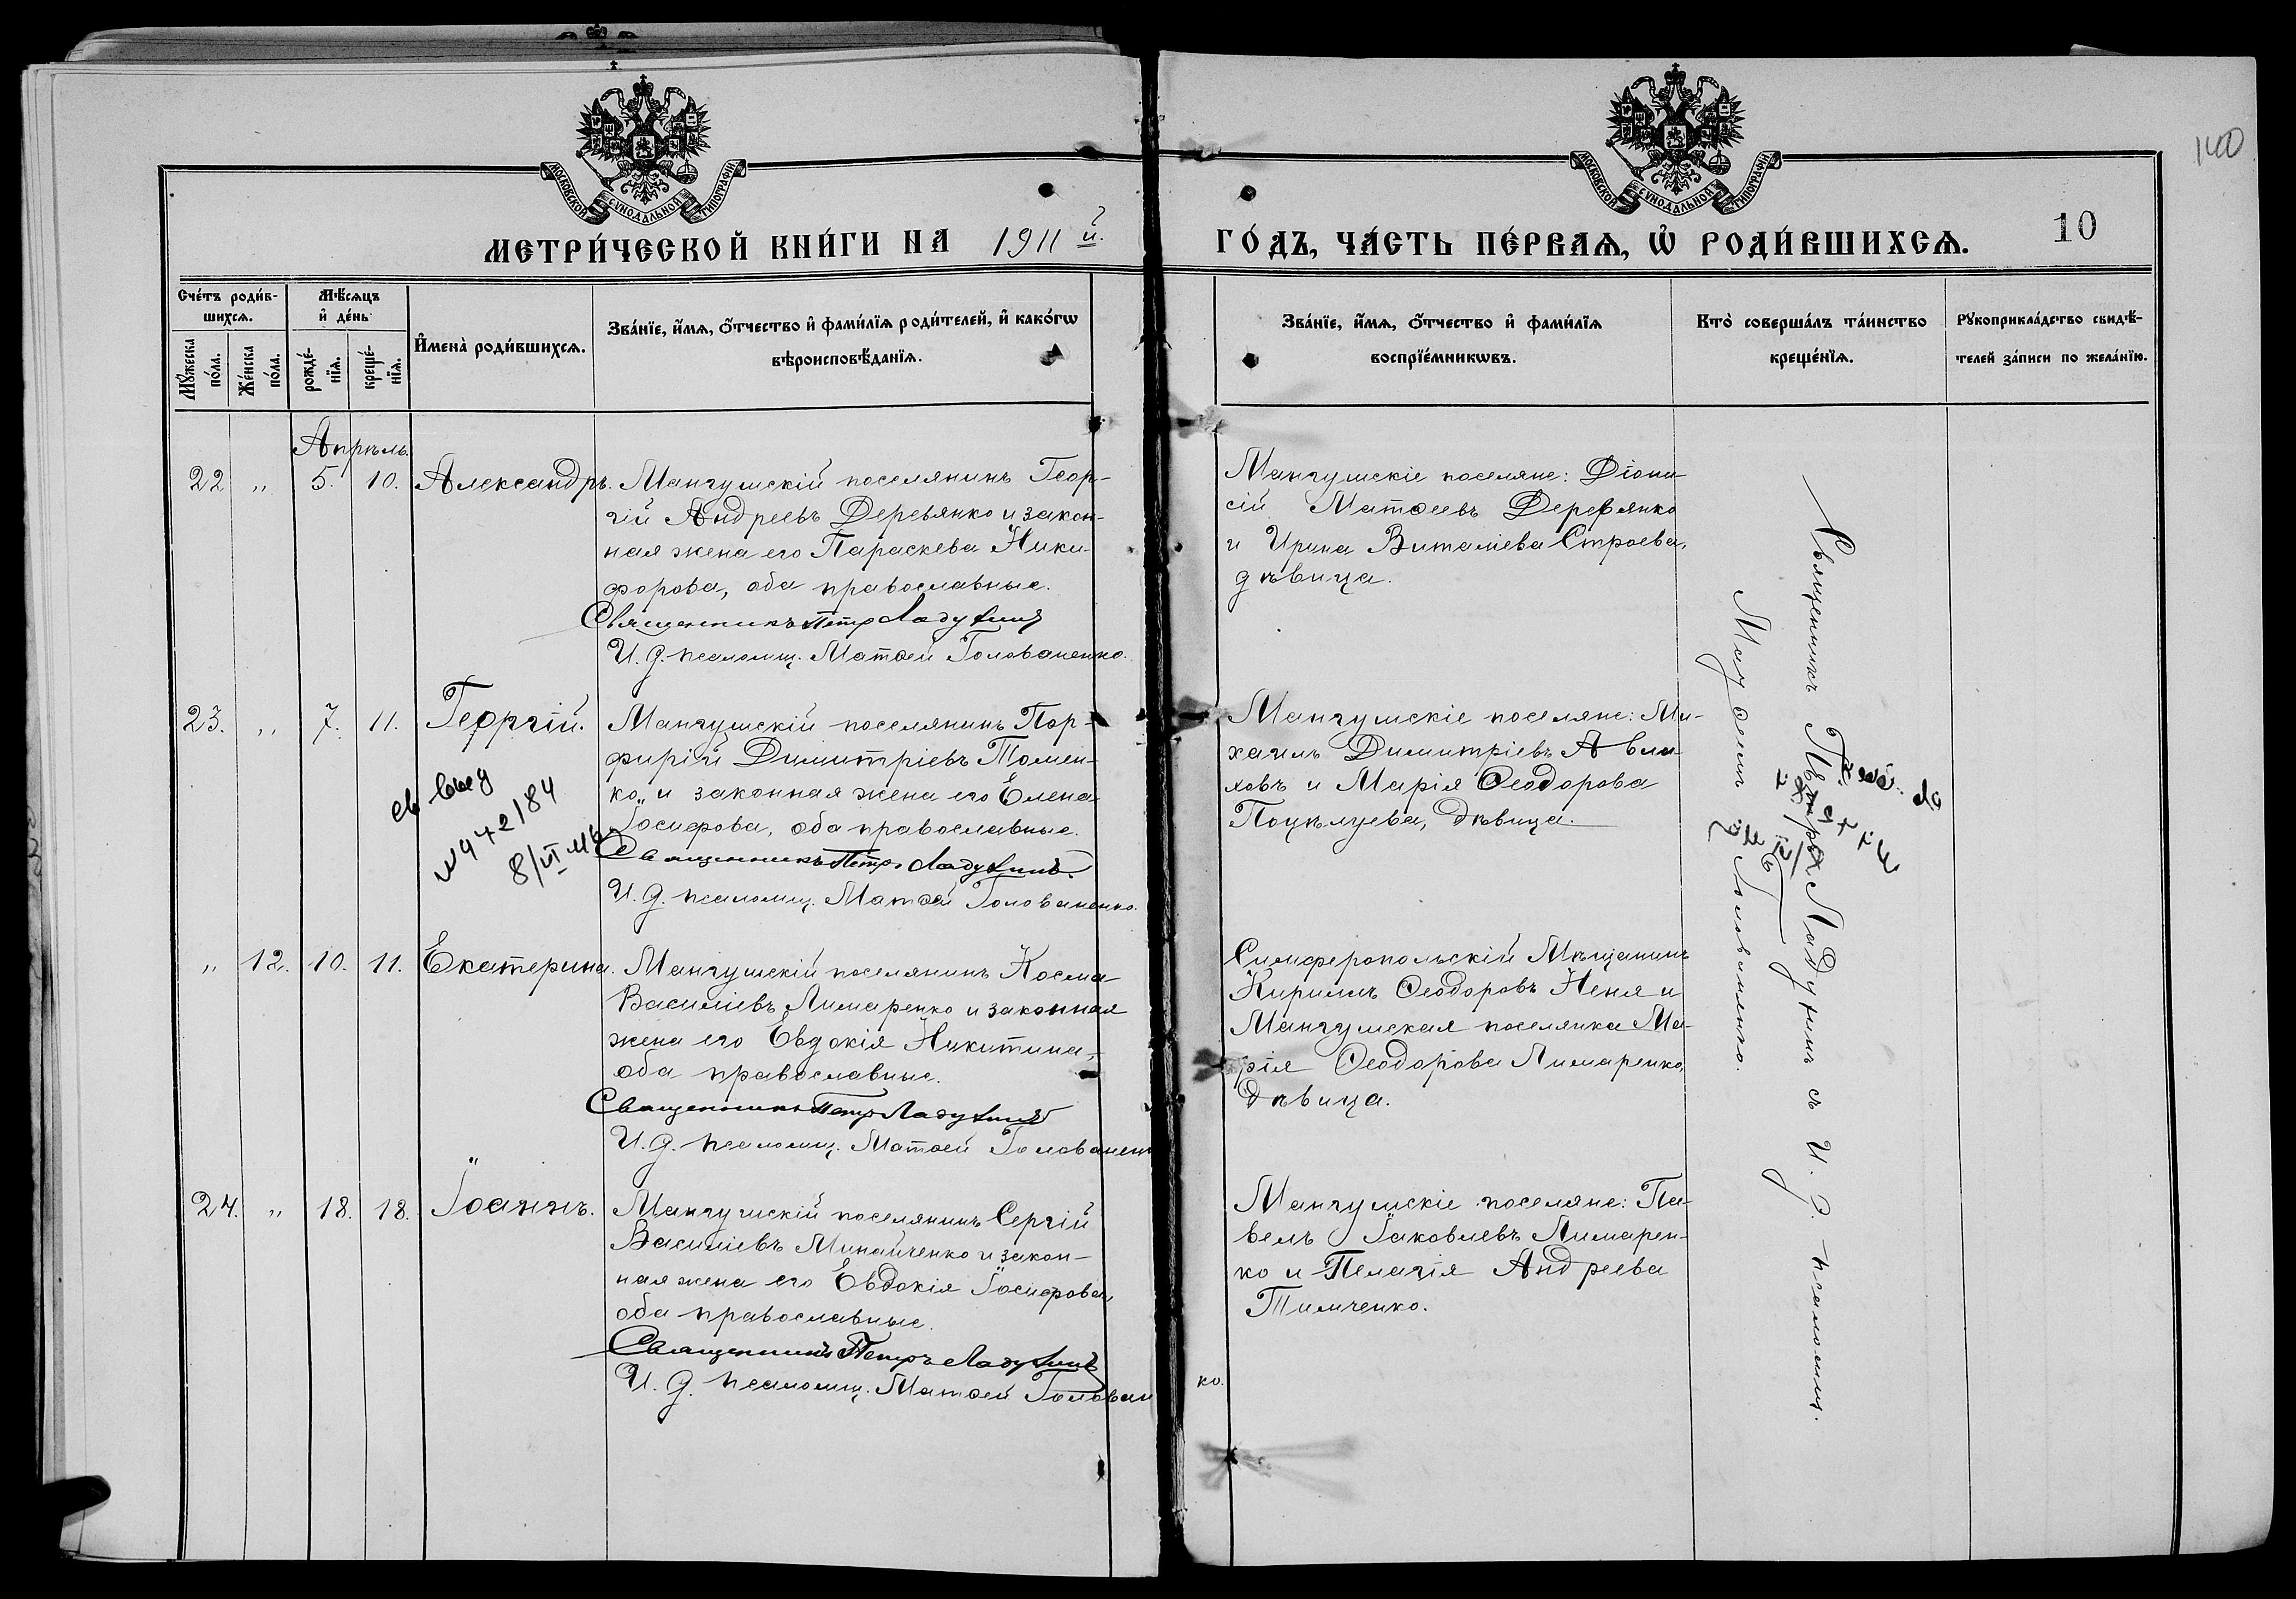 140
МОСКОВСКОЙ СѴНОДАЛЬНОЙ ТИПОГРАФІИ
МОСКОВСКОЙ СѴНОДАЛЬНОЙ ТИПОГРАФІИ
МЕТРИ́ЧЕСКОЙ КНИ́ГИ НА 1911 й.
ГО́ДЪ, ЧА́СТЬ ПЕ́РВАѦ, Ѡ҆ РОДИ́ВШИХСѦ. 10
Сче́тъ роди́в-
шихсѧ.
Мꙋ́жеска по́ла.
Же́нска по́ла.
Мѣ́сѧцъ
и҆ де́нь
рожде́-
нїѧ.
креще́-
нїѧ.
И҆мена̀ роди́вшихсѧ.
Зва́нїе, и҆́мѧ, ѻ҆́тчество и҆ фами́лїѧ роди́телей, и҆ како́гѡ
вѣроисповѣ́данїѧ.
Зва́нїе, и҆́мѧ, ѻ҆́тчество и҆ фами́лїѧ
воспрїе́мникѡвъ.
Кто̀ соверша́лъ та́инство
креще́нїѧ.
Рꙋкоприкла́дство свидѣ́-
телей за́писи по жела́нїю.
Апрѣль.
22 „ 5. 10. Александръ.
Мангушскій поселянинъ Геор-
гій Андреевъ Деревянко и закон-
ная жена его Параскева Ники-
форова, оба православные.
Священникъ Петръ Ладухинъ
И. д. псаломщ. Матѳей Голованенко.
Мангушскіе поселяне: Діони-
сій Матѳеевъ Деревянко
и Ирина Виталіева Строева,
дѣвица.
23. „ 7. 11. Георгій.
Мангушскій поселянинъ Пор-
фирій Димитріевъ Томен-
ко„ и законная жена его Елена
Іосифова, оба православные.
Священникъ Петръ Ладухинъ.
И. д. псаломщ. Матѳей Голованенко.
св выд
8/VI
Мангушскіе поселяне: Ми-
хаилъ Димитріевъ Авли-
ховъ и Марія Ѳеодорова
Поцѣлуева, дѣвица.
„ 12. 10. 11. Екатерина.
Мангушскій поселянинъ Косма
Василіевъ Лимаренко и законная
жена его Евдокія Никитина,
оба православные.
Священникъ Петръ Ладухинъ
И. д. псаломщ. Матѳей Голованен
Симферопольскій Мѣщанинъ
Кириллъ Ѳеодоровъ Неня и
Мангушская поселянка Ма-
рія Ѳеодорова Лимаренко,
дѣвица.
24. „ 18. 18. Іоаннъ.
Мангушскій поселянинъ Сергій
Василіевъ Минайченко и закон-
ная жена его Евдокія Іосифова,
оба православные.
Священникъ Петръ Ладухинъ
И. д. псаломщ. Матѳей Голован
ко.
Мангушскіе поселяне: Па-
велъ Іаковлевъ Лимарен-
ко и Пелагія Андреева
Тимченко.
Священникъ Петръ Ладухинъ съ И. д. псаломщ.
Голованенко.